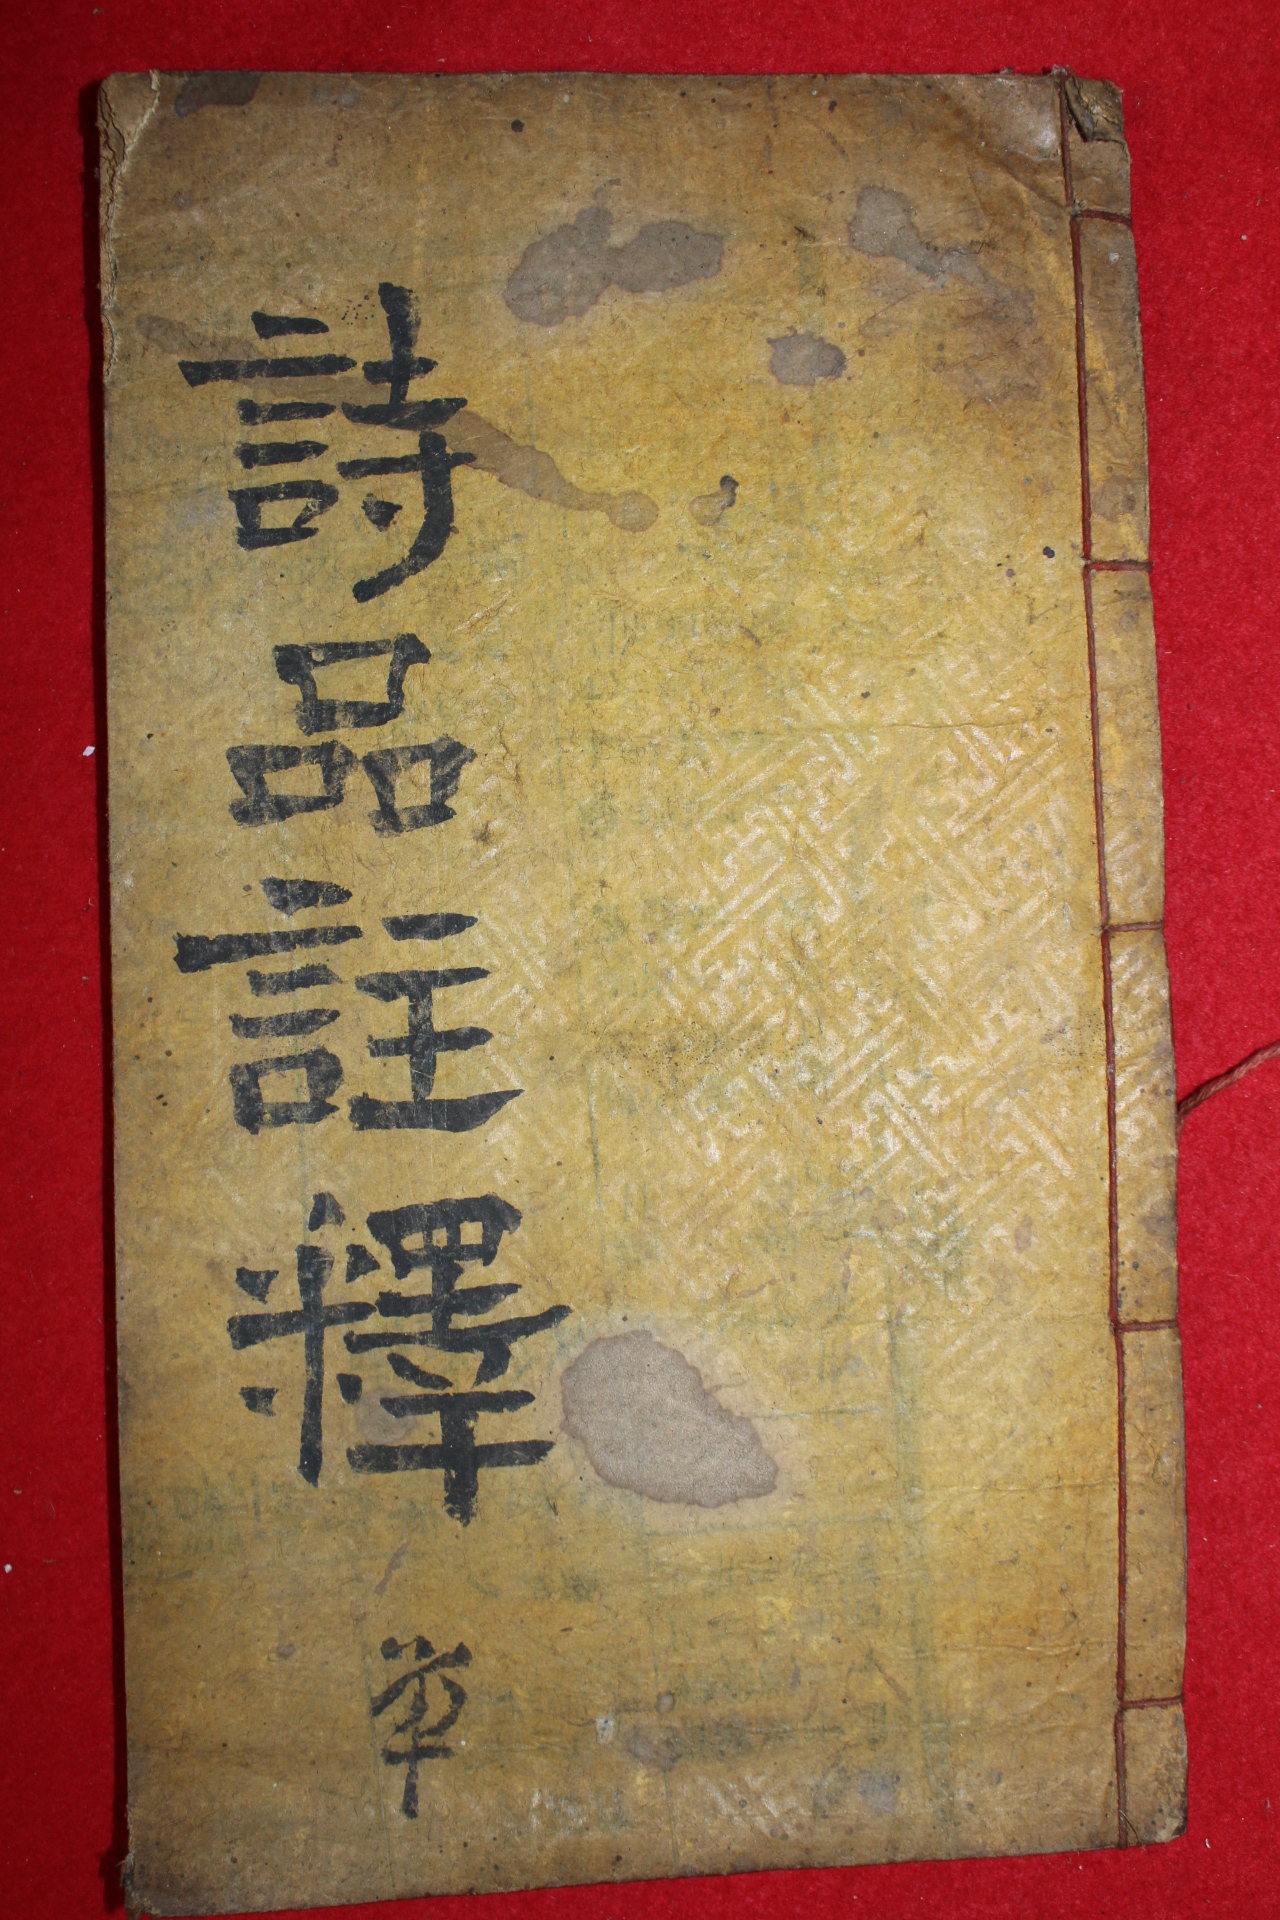 詩品註釋 單